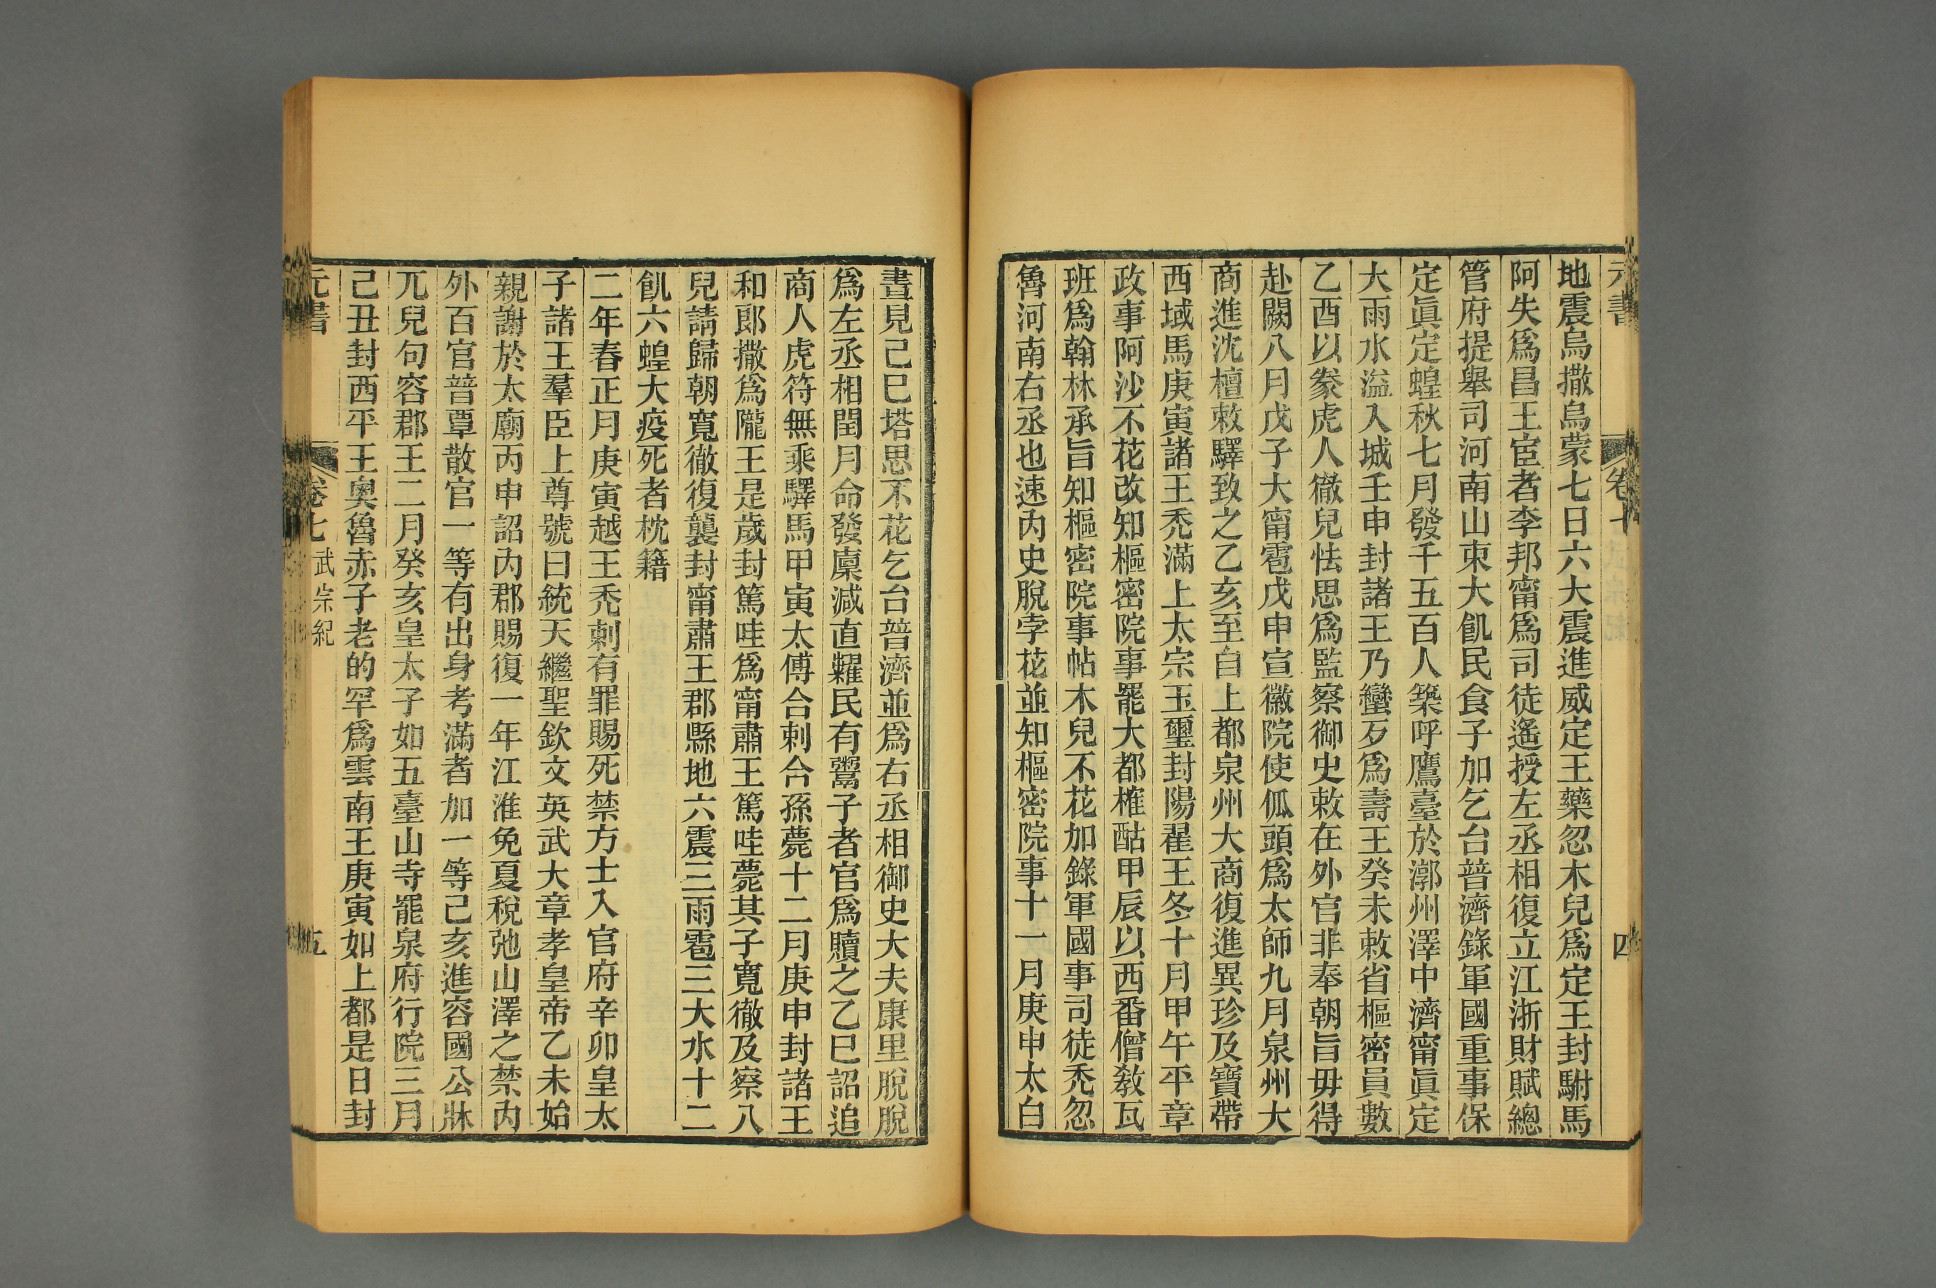 元書
卷七
四
地震烏撒烏蒙七日六大震進威定王藥忽木兒爲定王封駙馬
阿失爲昌王宦者李邦甯爲司徒遙授左丞相復立江浙財賦總
管府提舉司河南山東大飢民食子加乞台普濟錄軍國重事保
定眞定蝗秋七月發千五百人築呼鷹臺於漷州澤中濟甯眞定
大雨水溢入城壬申封諸王乃蠻歹爲壽王癸未敕省樞密員數
乙酉以豢虎人徹兒怯思爲監察御史敕在外官非奉朝旨毋得
赴闕八月戊子大甯雹戊申宣徽院使㼌頭爲太師九月泉州大
商進沈檀敕驛致之乙亥至自上都泉州大商復進異珍及寶帶
西域馬庚寅諸王禿滿上太宗玉璽封陽翟王冬十月甲午平章
政事阿沙不花改知樞密院事罷大都榷酤甲辰以西番僧教瓦
班爲翰林承旨知樞密院事帖木兒不花加錄軍國事司徒禿忽
魯河南右丞也速內史脫孛花並知樞密院事十一月庚申太白
晝見己巳塔思不花乞台普濟並爲右丞相御史大夫康里脫脫
爲左丞相閏月命發廩減直糶民有鬻子者官爲贖之乙巳詔追
商人虎符無乘驛馬甲寅太傅合剌合孫薨十二月庚申封諸王
和郎撒爲隴王是歲封篤哇爲甯肅王篤哇薨其子寬徹及察八
兒請歸朝寬徹復襲封甯肅王郡縣地六震三雨雹三大水十二
飢六蝗大疫死者枕籍
二年春正月庚寅越王禿剌有罪賜死禁方士入官府辛卯皇太
子諸王羣臣上尊號曰統天繼聖欽文英武大章孝皇帝乙未始
親謝於太廟丙申詔內郡賜復一年江淮免夏稅弛山澤之禁內
外百官普覃散官一等有出身考滿者加一等己亥進容國公牀
兀兒句容郡王二月癸亥皇太子如五臺山寺罷泉府行院三月
己丑封西平王奧魯赤子老的罕爲雲南王庚寅如上都是日封
元書
卷七
武宗紀
五